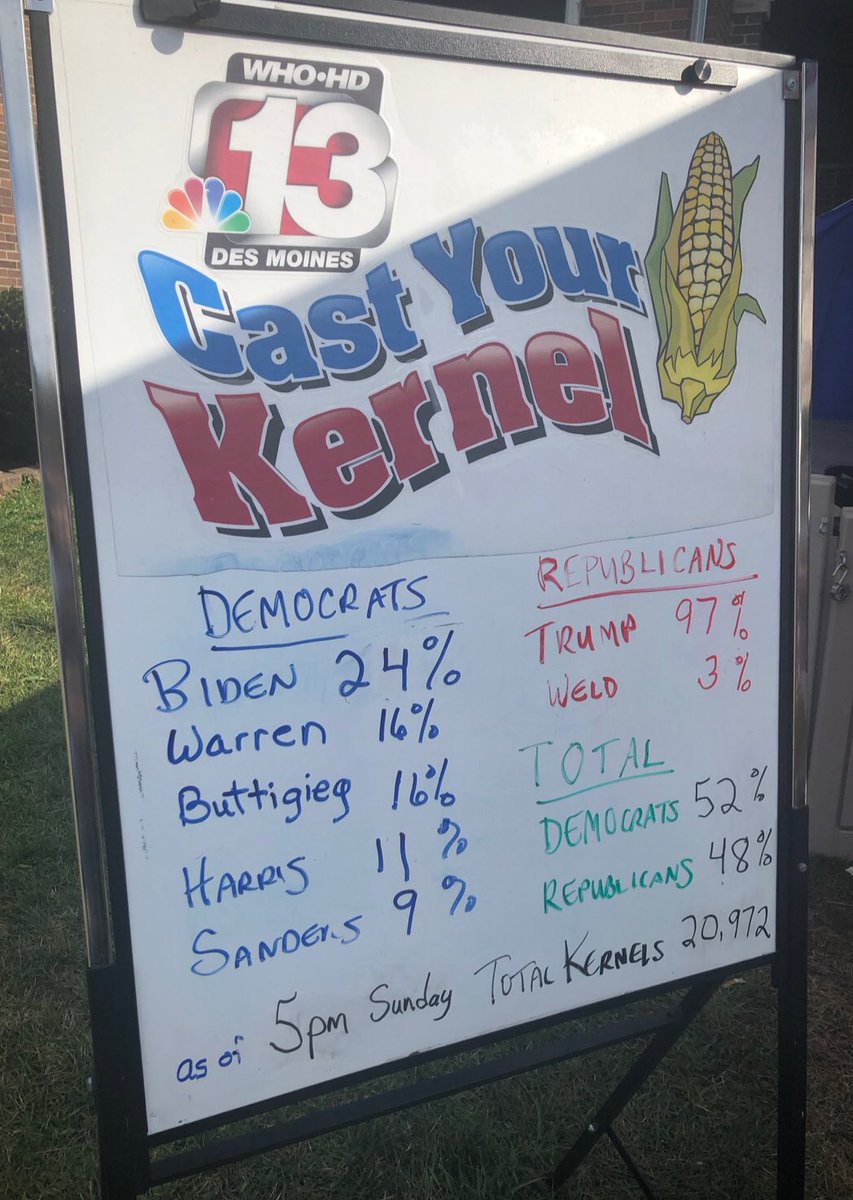 WHO•HD
13
DES MOINES
Cast Your
Kernel
DEMOCRATS
BIDEN 24%
Warren 16%
Buttigieg 16%
HARRIS 11%
SANDERS 9%
REPUBLICANS
TRUMP 97%
WELD 3%
TOTAL
DEMOCRATS 52%
REPUBLICANS 48%
as of 5pm Sunday TOTAL KERNELS 20,972